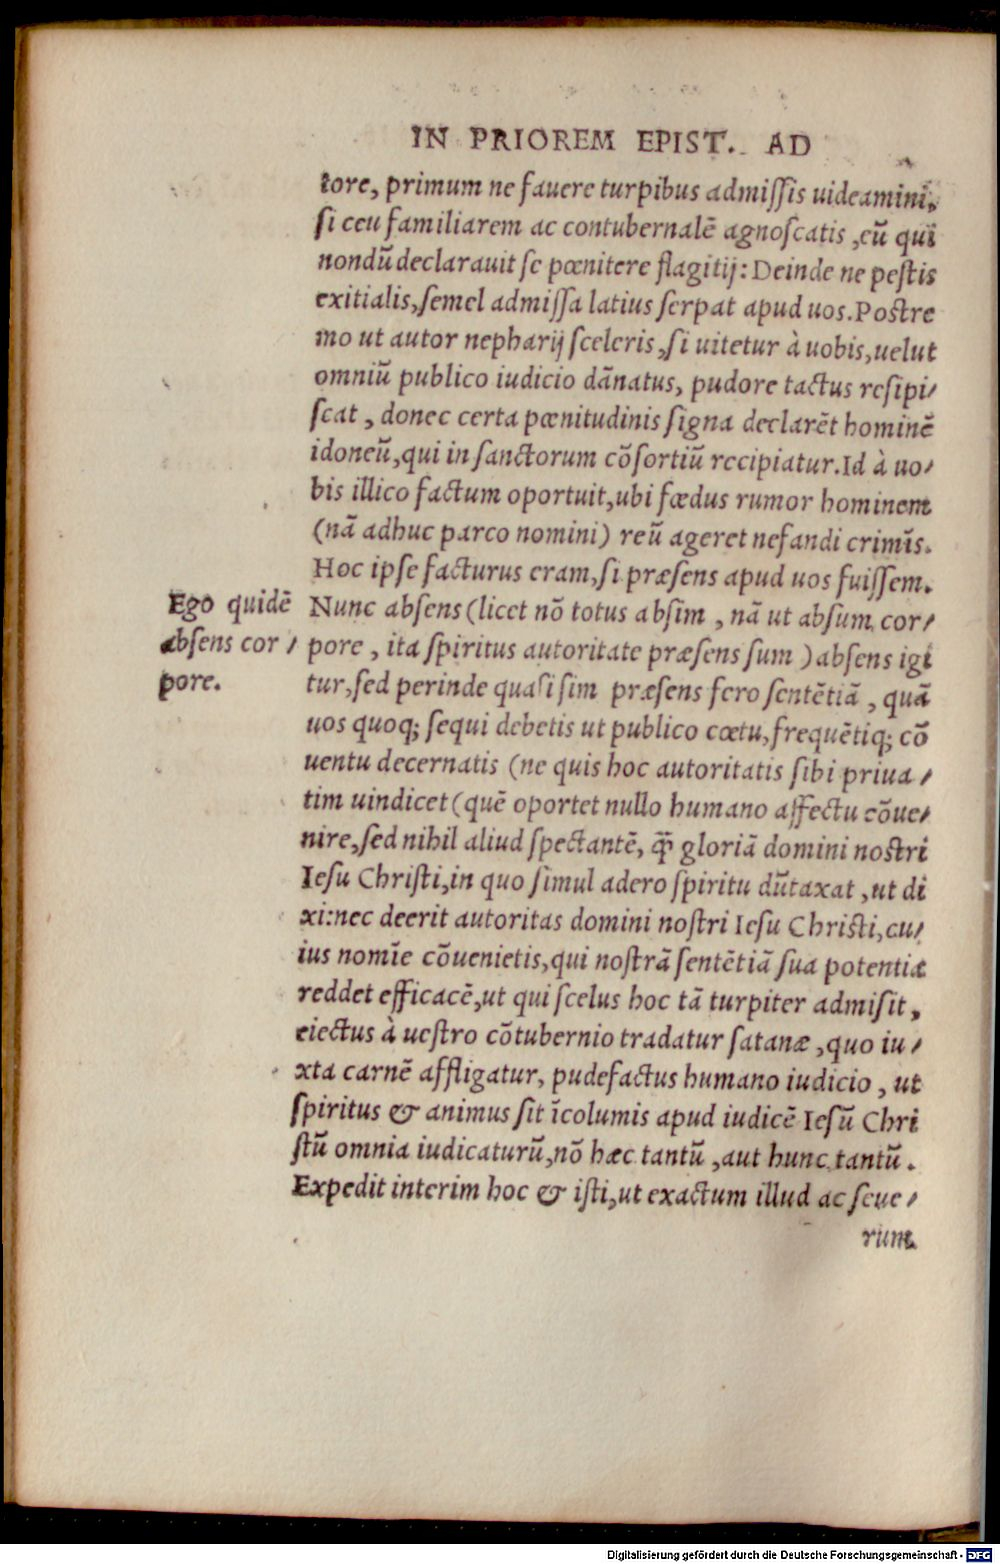 IN PRIOREM EPIST. AD
tore, primum ne fauere turpibus admiſſis uideamini,
ſi ceu familiarem ac contubernalē agnoſcatis, eū qui
nondū declarauit ſe pœnitere flagitij: Deinde ne peſtis
exitialis, ſemel admiſſa latius ſerpat apud uos. Poſtre
mo ut autor nepharij ſceleris, ſi uitetur à uobis, uelut
omniū publico iudicio dānatus, pudore tactus reſipi/
ſcat, donec certa pœnitudinis ſigna declarēt hominē
idoneū, qui in ſanctorum cōſortiū recipiatur. Id à uo/
bis illico factum oportuit, ubi fœdus rumor hominem
(nā adhuc parco nomini) reū ageret nefandi crimīs.
Hoc ipſe facturus eram, ſi præſens apud uos fuiſſem.
Ego quidē
abſens cor/
pore.
Nunc abſens (licet nō totus abſim, nā ut abſum cor/
pore, ita ſpiritus autoritate præſens ſum) abſens igi
tur, ſed perinde quaſi ſim præſens fero ſentētiā, quā
uos quoq; ſequi debetis ut publico cœtu, frequētiq; cō
uentu decernatis (ne quis hoc autoritatis ſibi priua/
tim uindicet (quē oportet nullo humano affectu cōue/
nire, ſed nihil aliud ſpectantē, q̄ gloriā domini noſtri
Ieſu Chriſti, in quo ſimul adero ſpiritu dūtaxat, ut di
xi: nec deerit autoritas domini noſtri Ieſu Chriſti, cu/
ius nomīe cōuenietis, qui noſtrā ſentētiā ſua potentia
reddet efficacē, ut qui ſcelus hoc tā turpiter admiſit,
eiectus à ueſtro cōtubernio tradatur ſatanæ, quo iu/
xta carnē affligatur, pudefactus humano iudicio, ut
ſpiritus & animus ſit īcolumis apud iudicē Ieſū Chri
ſtū omnia iudicaturū, nō hæc tantū, aut hunc tantū.
Expedit interim hoc & iſti, ut exactum illud ac ſeue/
rum
Digitalisierung gefördert durch die Deutsche Forschungsgemeinschaft - DFG